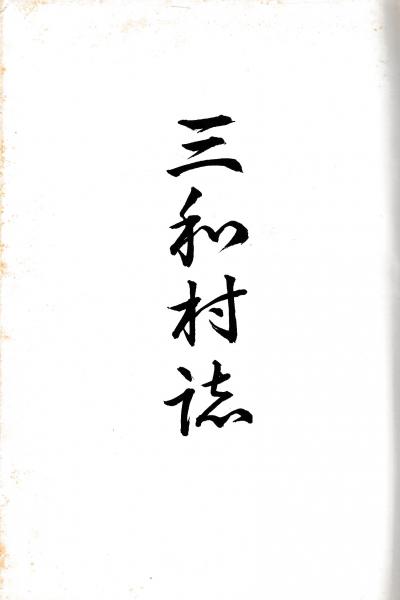 三和村誌